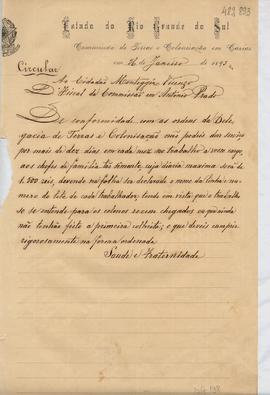 422 893
Estado do Rio Grande do Sul
Commissão de Terras e Colonisação em Caxias
em 26 de Janeiro de 1893
Circular
Ao Cidadão Montaggia Vicenzo
Fiscal da Commissão em Antonio Prado
De conformidade com as ordens da Dele-
gacia de Terras e Colonisação não podeis dar serviço
por mais de dez dias em cada mez no trabalho a vosso cargo,
aos chefes de familia, tão sómente, cuja diaria maxima será de
1.500 reis, devendo na folha ser declarado o nome da linha e nu-
mero do lote de cada trabalhador; tendo em vista que o trabalho
só se entende para os colonos recem chegados ou que ainda
não tenhão feito a primeira colheita; o que deveis cumprir
rigorosamente na forma ordenada
Saude e Fraternidade